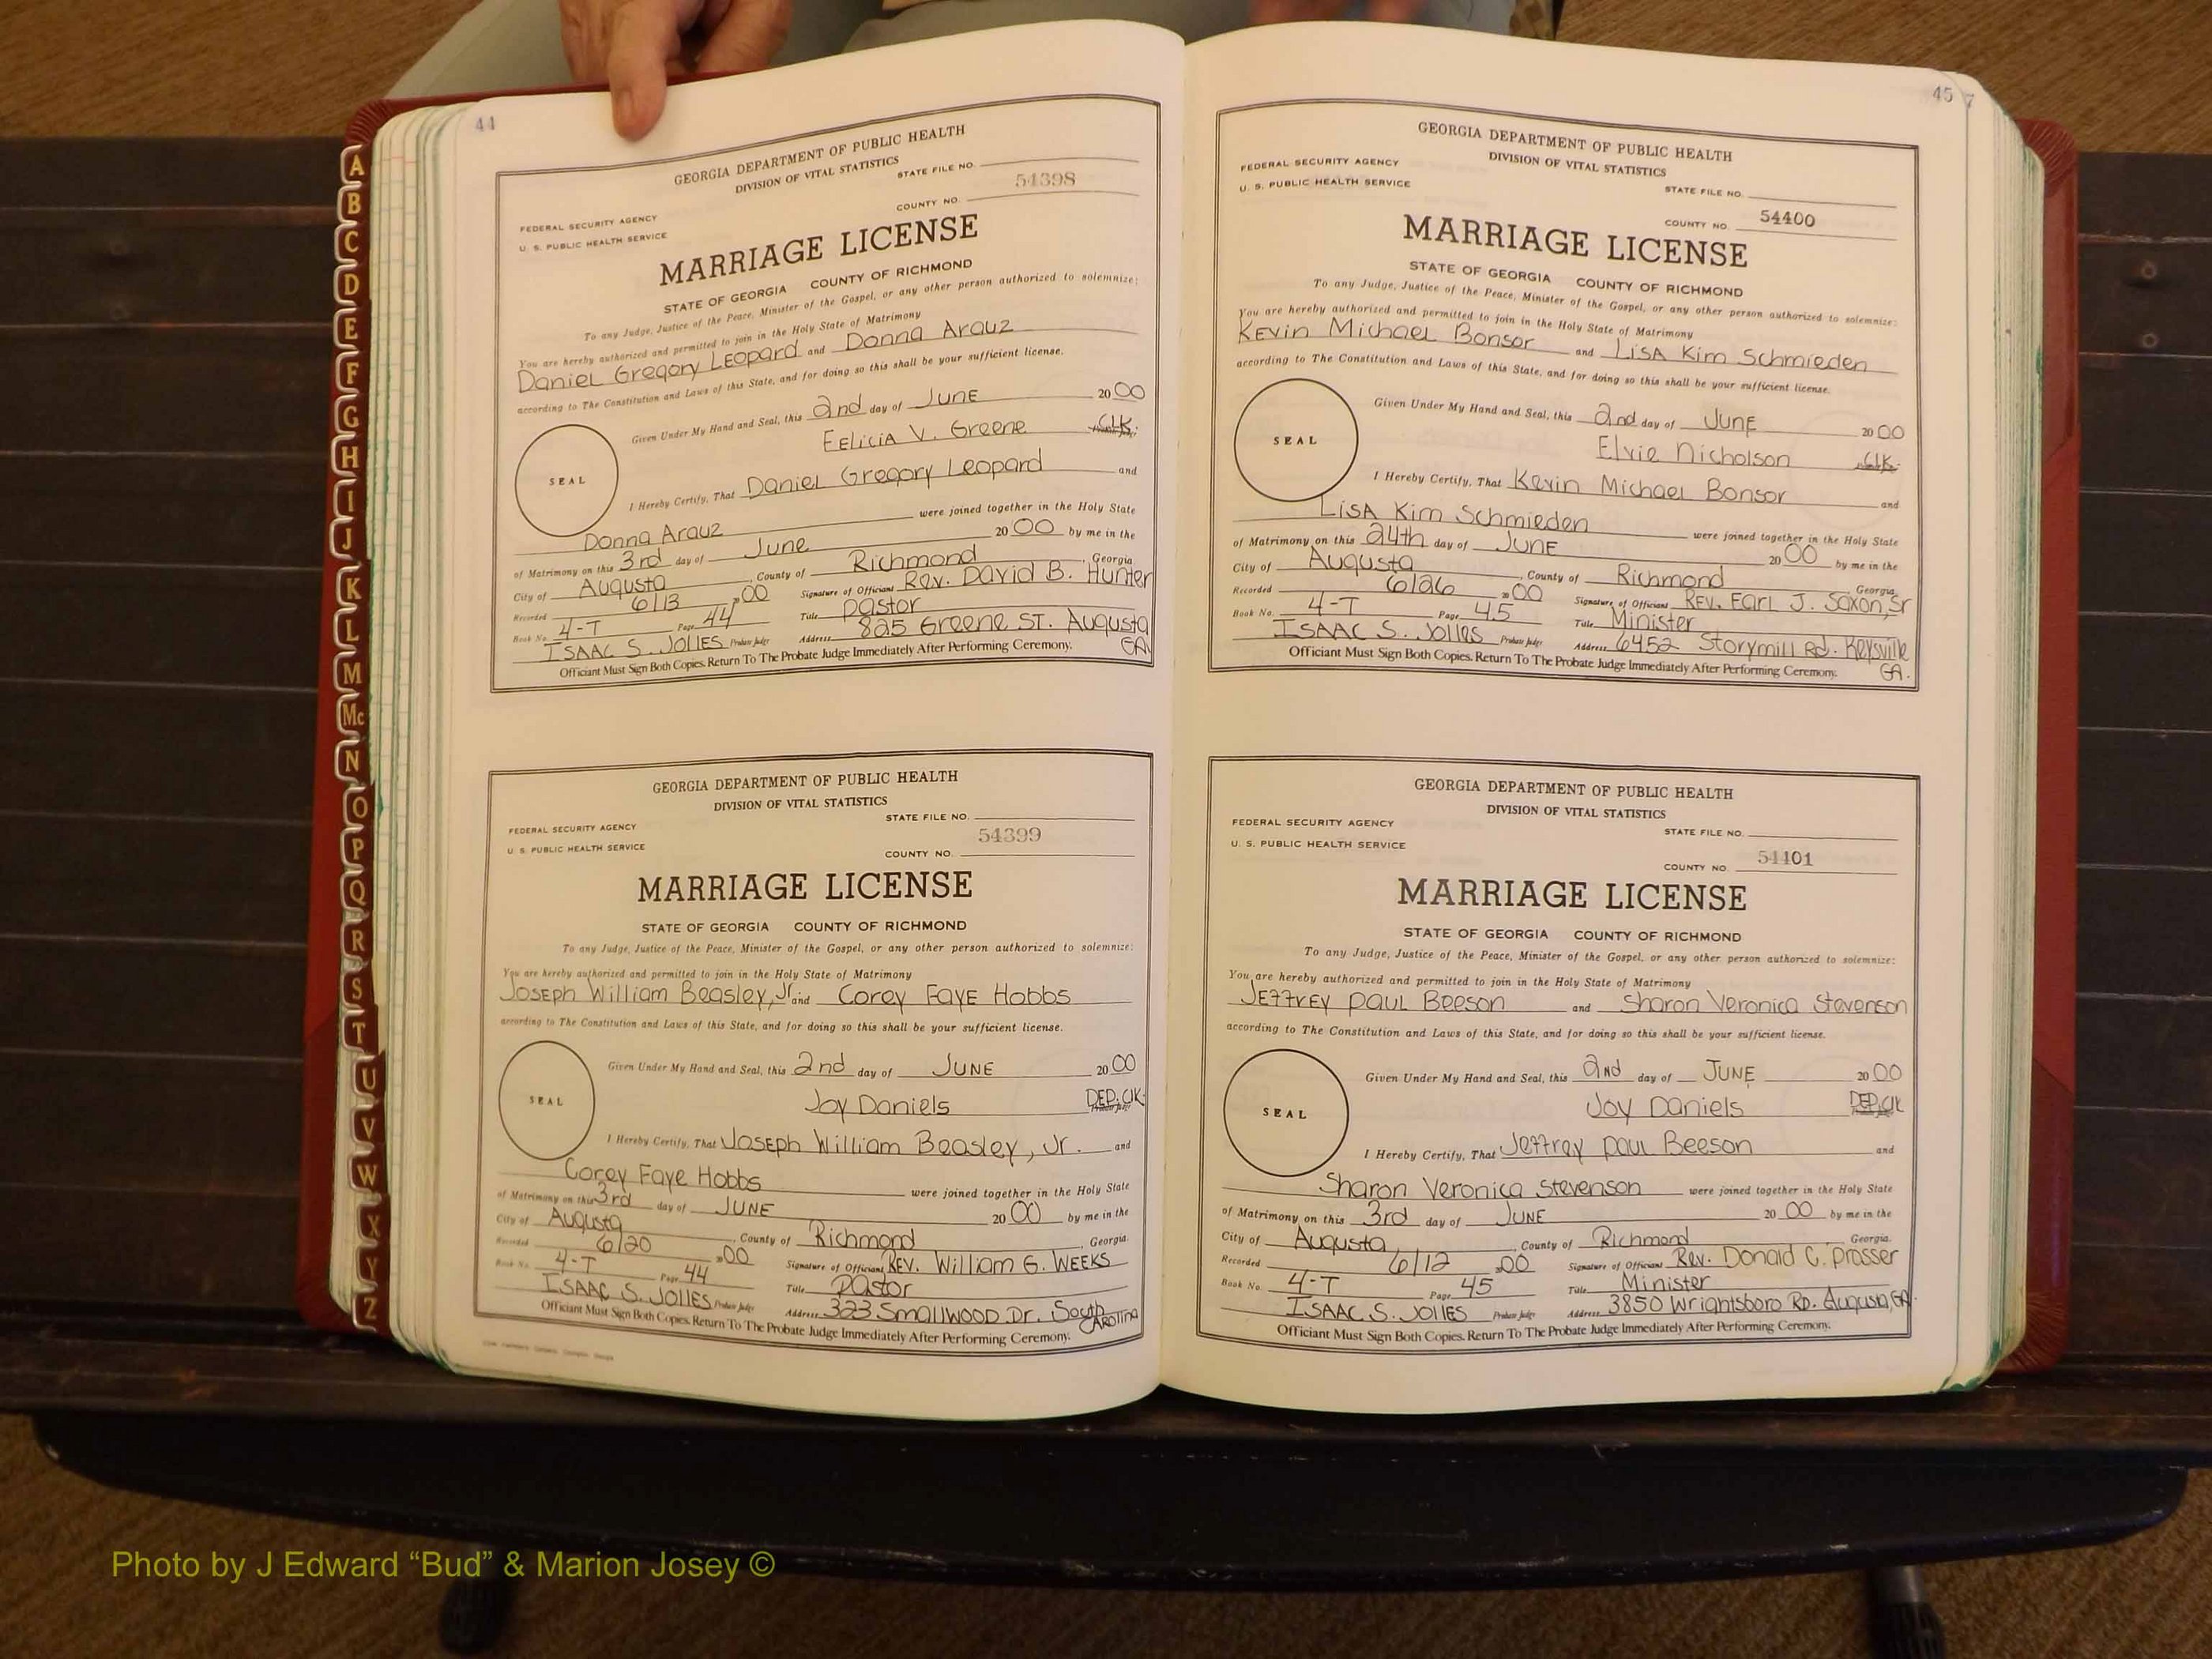 A
B
C
D
E
F
G
H
I
J
K
L
M
Mc
N
O
P
Q
R
S
T
U
V
W
X
Y
Z
44
GEORGIA DEPARTMENT OF PUBLIC HEALTH
DIVISION OF VITAL STATISTICS
STATE FILE NO.
54398
FEDERAL SECURITY AGENCY
COUNTY NO.
U. S. PUBLIC HEALTH SERVICE
MARRIAGE LICENSE
STATE OF GEORGIA COUNTY OF RICHMOND
To any Judge, Justice of the Peace, Minister of the Gospel, or any other person authorized to solemnize:
You are hereby authorized and permitted to join in the Holy State of Matrimony
Daniel Gregory Leopard and Donna Arauz
according to The Constitution and Laws of this State, and for doing so this shall be your sufficient license.
Given Under My Hand and Seal, this 2nd day of June 2000
Eelicia V. Greene CLK.
SEAL
I Hereby Certify, That Daniel Gregory Leopard and
Donna Arauz were joined together in the Holy State
of Matrimony on this 3rd day of June 2000 by me in the
City of Augusta, County of Richmond, Georgia
Recorded 6/13 2000 Signature of Officiant Rev. David B. Hunter
Book No. 4-T Page 44 Title Pastor
ISAAC S. JOLLES Probate Judge Address 825 Greene ST. Augusta
GA
Officiant Must Sign Both Copies. Return To The Probate Judge Immediately After Performing Ceremony.
GEORGIA DEPARTMENT OF PUBLIC HEALTH
DIVISION OF VITAL STATISTICS
STATE FILE NO.
FEDERAL SECURITY AGENCY
54399
U. S. PUBLIC HEALTH SERVICE
COUNTY NO.
MARRIAGE LICENSE
STATE OF GEORGIA COUNTY OF RICHMOND
To any Judge, Justice of the Peace, Minister of the Gospel, or any other person authorized to solemnize:
You are hereby authorized and permitted to join in the Holy State of Matrimony
Joseph William Beasley, Jr. and Corey Faye Hobbs
according to The Constitution and Laws of this State, and for doing so this shall be your sufficient license.
Given Under My Hand and Seal, this 2nd day of JUNE 2000
Joy Daniels DEP. CLK.
SEAL
I Hereby Certify, That Joseph William Beasley, Jr. and
Corey Faye Hobbs were joined together in the Holy State
of Matrimony on this 3rd day of JUNE 2000 by me in the
City of Augusta, County of Richmond, Georgia.
Recorded 6/20 2000 Signature of Officiant REV. William G. WEEKS
Book No. 4-T Page 44 Title Pastor
ISAAC S. JOLLES Probate Judge Address 323 Smallwood Dr. South
CAROlina
Officiant Must Sign Both Copies. Return To The Probate Judge Immediately After Performing Ceremony.
45 7
GEORGIA DEPARTMENT OF PUBLIC HEALTH
DIVISION OF VITAL STATISTICS
FEDERAL SECURITY AGENCY
U. S. PUBLIC HEALTH SERVICE
STATE FILE NO.
COUNTY NO. 54400
MARRIAGE LICENSE
STATE OF GEORGIA COUNTY OF RICHMOND
To any Judge, Justice of the Peace, Minister of the Gospel, or any other person authorized to solemnize:
You are hereby authorized and permitted to join in the Holy State of Matrimony
Kevin Michael Bonsor and LiSA Kim Schmieden
according to The Constitution and Laws of this State, and for doing so this shall be your sufficient license.
Given Under My Hand and Seal, this 2nd day of JUNE 2000
Elvie Nicholson CLK.
SEAL
I Hereby Certify, That Kevin Michael Bonsor and
LiSA Kim Schmieden were joined together in the Holy State
of Matrimony on this 24th day of JUNE 2000 by me in the
City of Augusta, County of Richmond Georgia
Recorded 6/26 2000 Signature of Officiant REV. Earl J. Saxon, Sr
Book No. 4-T Page 45 Title Minister
ISAAC S. JOLLES Probate Judge Address 6452 Storymill Rd. Keysville
GA.
Officiant Must Sign Both Copies. Return To The Probate Judge Immediately After Performing Ceremony.
GEORGIA DEPARTMENT OF PUBLIC HEALTH
DIVISION OF VITAL STATISTICS
FEDERAL SECURITY AGENCY
STATE FILE NO.
U. S. PUBLIC HEALTH SERVICE
COUNTY NO. 54401
MARRIAGE LICENSE
STATE OF GEORGIA COUNTY OF RICHMOND
To any Judge, Justice of the Peace, Minister of the Gospel, or any other person authorized to solemnize:
You are hereby authorized and permitted to join in the Holy State of Matrimony
JEffrey Paul Beeson and Sharon Veronica Stevenson
according to The Constitution and Laws of this State, and for doing so this shall be your sufficient license.
Given Under My Hand and Seal, this 2nd day of JUNE 2000
Joy Daniels DEP. CLK
SEAL
I Hereby Certify, That Jeffrey Paul Beeson and
Sharon Veronica Stevenson were joined together in the Holy State
of Matrimony on this 3rd day of JUNE 2000 by me in the
City of Augusta, County of Richmond, Georgia.
Recorded 6/12 2000 Signature of Officiant Rev. Donald C. Prosser
Book No. 4-T Page 45 Title Minister
ISAAC S. JOLLES Probate Judge Address 3850 Wrightsboro RD. Augusta, GA.
Officiant Must Sign Both Copies. Return To The Probate Judge Immediately After Performing Ceremony.
Photo by J Edward “Bud” & Marion Josey ©